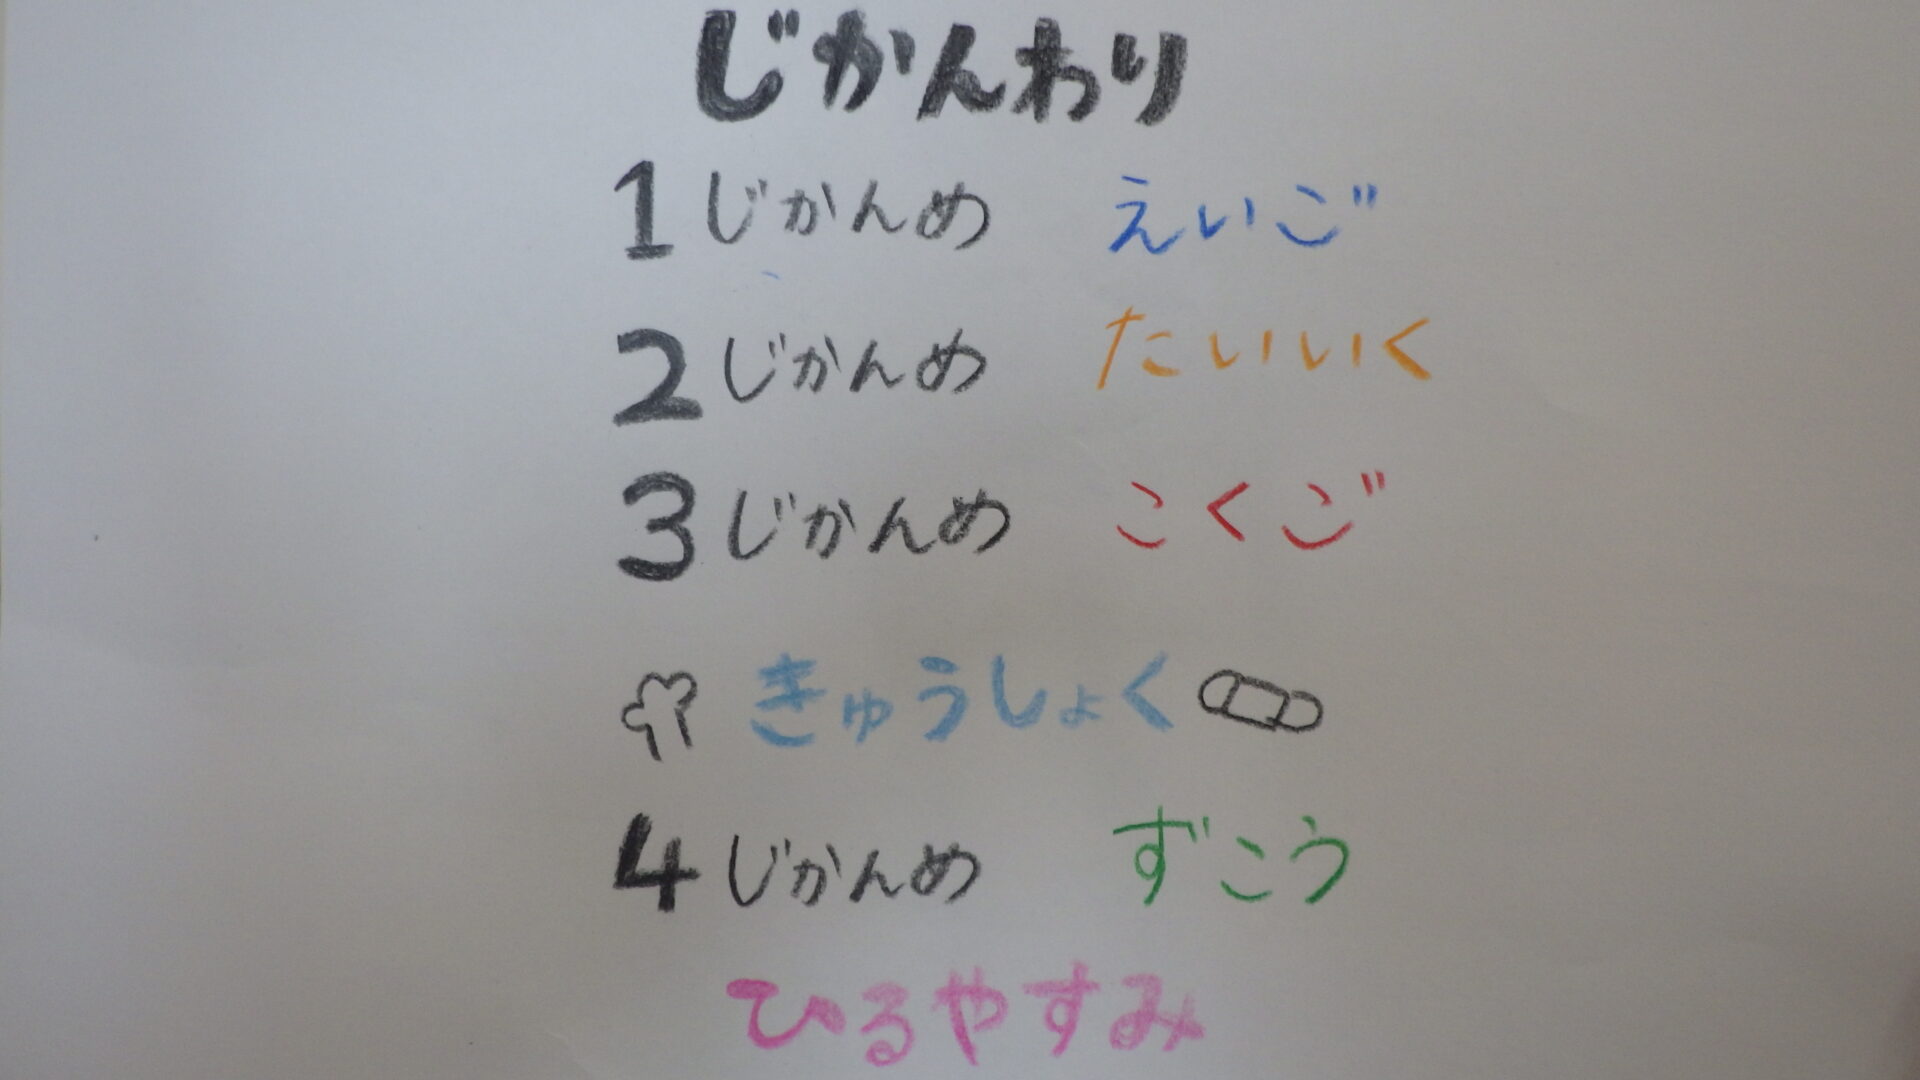 じかんわり
1じかんめ えいご
2じかんめ たいいく
3じかんめ こくご
きゅうしょく
4じかんめ ずこう
ひるやすみ